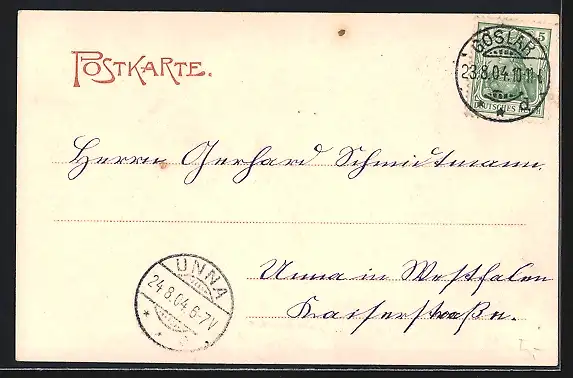 POSTKARTE.
5
GOSLAR
23.8.04.10-11
DEUTSCHES REICH
Herrn Gerhard Schmidtmann.
Unna in Westfalen
Kaiserstraße.
UNNA
24.8.04.6-7V